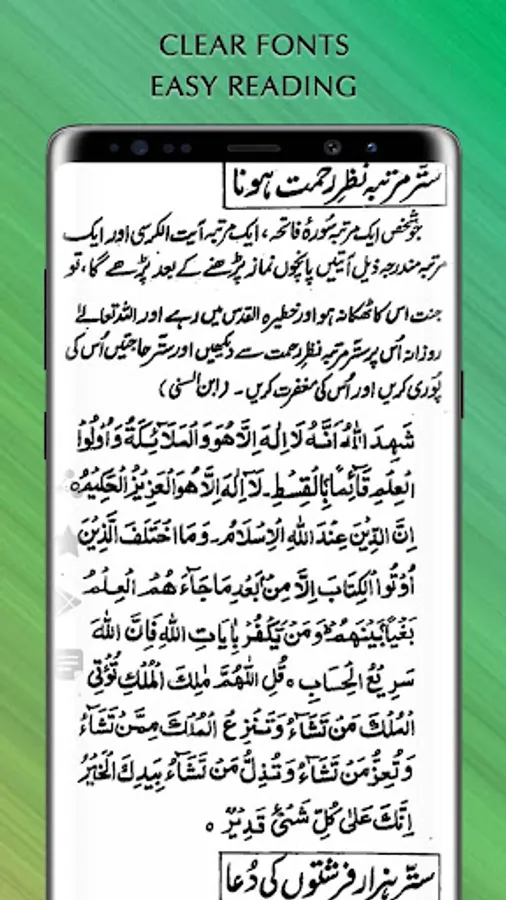 CLEAR FONTS
EASY READING
ستّر مرتبہ نظرِ رحمت ہونا
جو شخص ایک مرتبہ سُورۂ فاتحہ، ایک مرتبہ آیت الکرسی اور ایک
مرتبہ مندرجہ ذیل آیتیں پانچوں نماز پڑھنے کے بعد پڑھے گا، تو
جنت اس کا ٹھکانہ ہو اور خطیرہ القدس میں رہے اور اللہ تعالےٰ
روزانہ اُس پر ستّر مرتبہ نظرِ رحمت سے دیکھیں اور ستّر حاجتیں اُس کی
پُوری کریں اور اُس کی مغفرت کریں۔ (ابن السنی)
شَهِدَ اللّٰهُ اَنَّهٗ لَا اِلٰهَ اِلَّا هُوَ وَالْمَلَآئِكَةُ وَاُولُوا
الْعِلْمِ قَآئِمًا بِالْقِسْطِ۔ لَآ اِلٰهَ اِلَّا هُوَ الْعَزِيْزُ الْحَكِيْمُ ٥
اِنَّ الدِّيْنَ عِنْدَ اللّٰهِ الْاِسْلَامُ۔ وَمَا اخْتَلَفَ الَّذِيْنَ
اُوْتُوا الْكِتَابَ اِلَّا مِنْۢ بَعْدِ مَا جَآءَ هُمُ الْعِلْمُ
بَغْيًاۢ بَيْنَهُمْ وَمَنْ يَّكْفُرْ بِاٰيَاتِ اللّٰهِ فَاِنَّ اللّٰهَ
سَرِيْعُ الْحِسَابِ ٥ قُلِ اللّٰهُمَّ مٰلِكَ الْمُلْكِ تُؤْتِي
الْمُلْكَ مَنْ تَشَآءُ وَتَنْزِعُ الْمُلْكَ مِمَّنْ تَشَآءُ
وَتُعِزُّ مَنْ تَشَآءُ وَتُذِلُّ مَنْ تَشَآءُ بِيَدِكَ الْخَيْرُ
اِنَّكَ عَلٰى كُلِّ شَيْءٍ قَدِيْرٌ ٥
ستّر ہزار فرشتوں کی دُعا